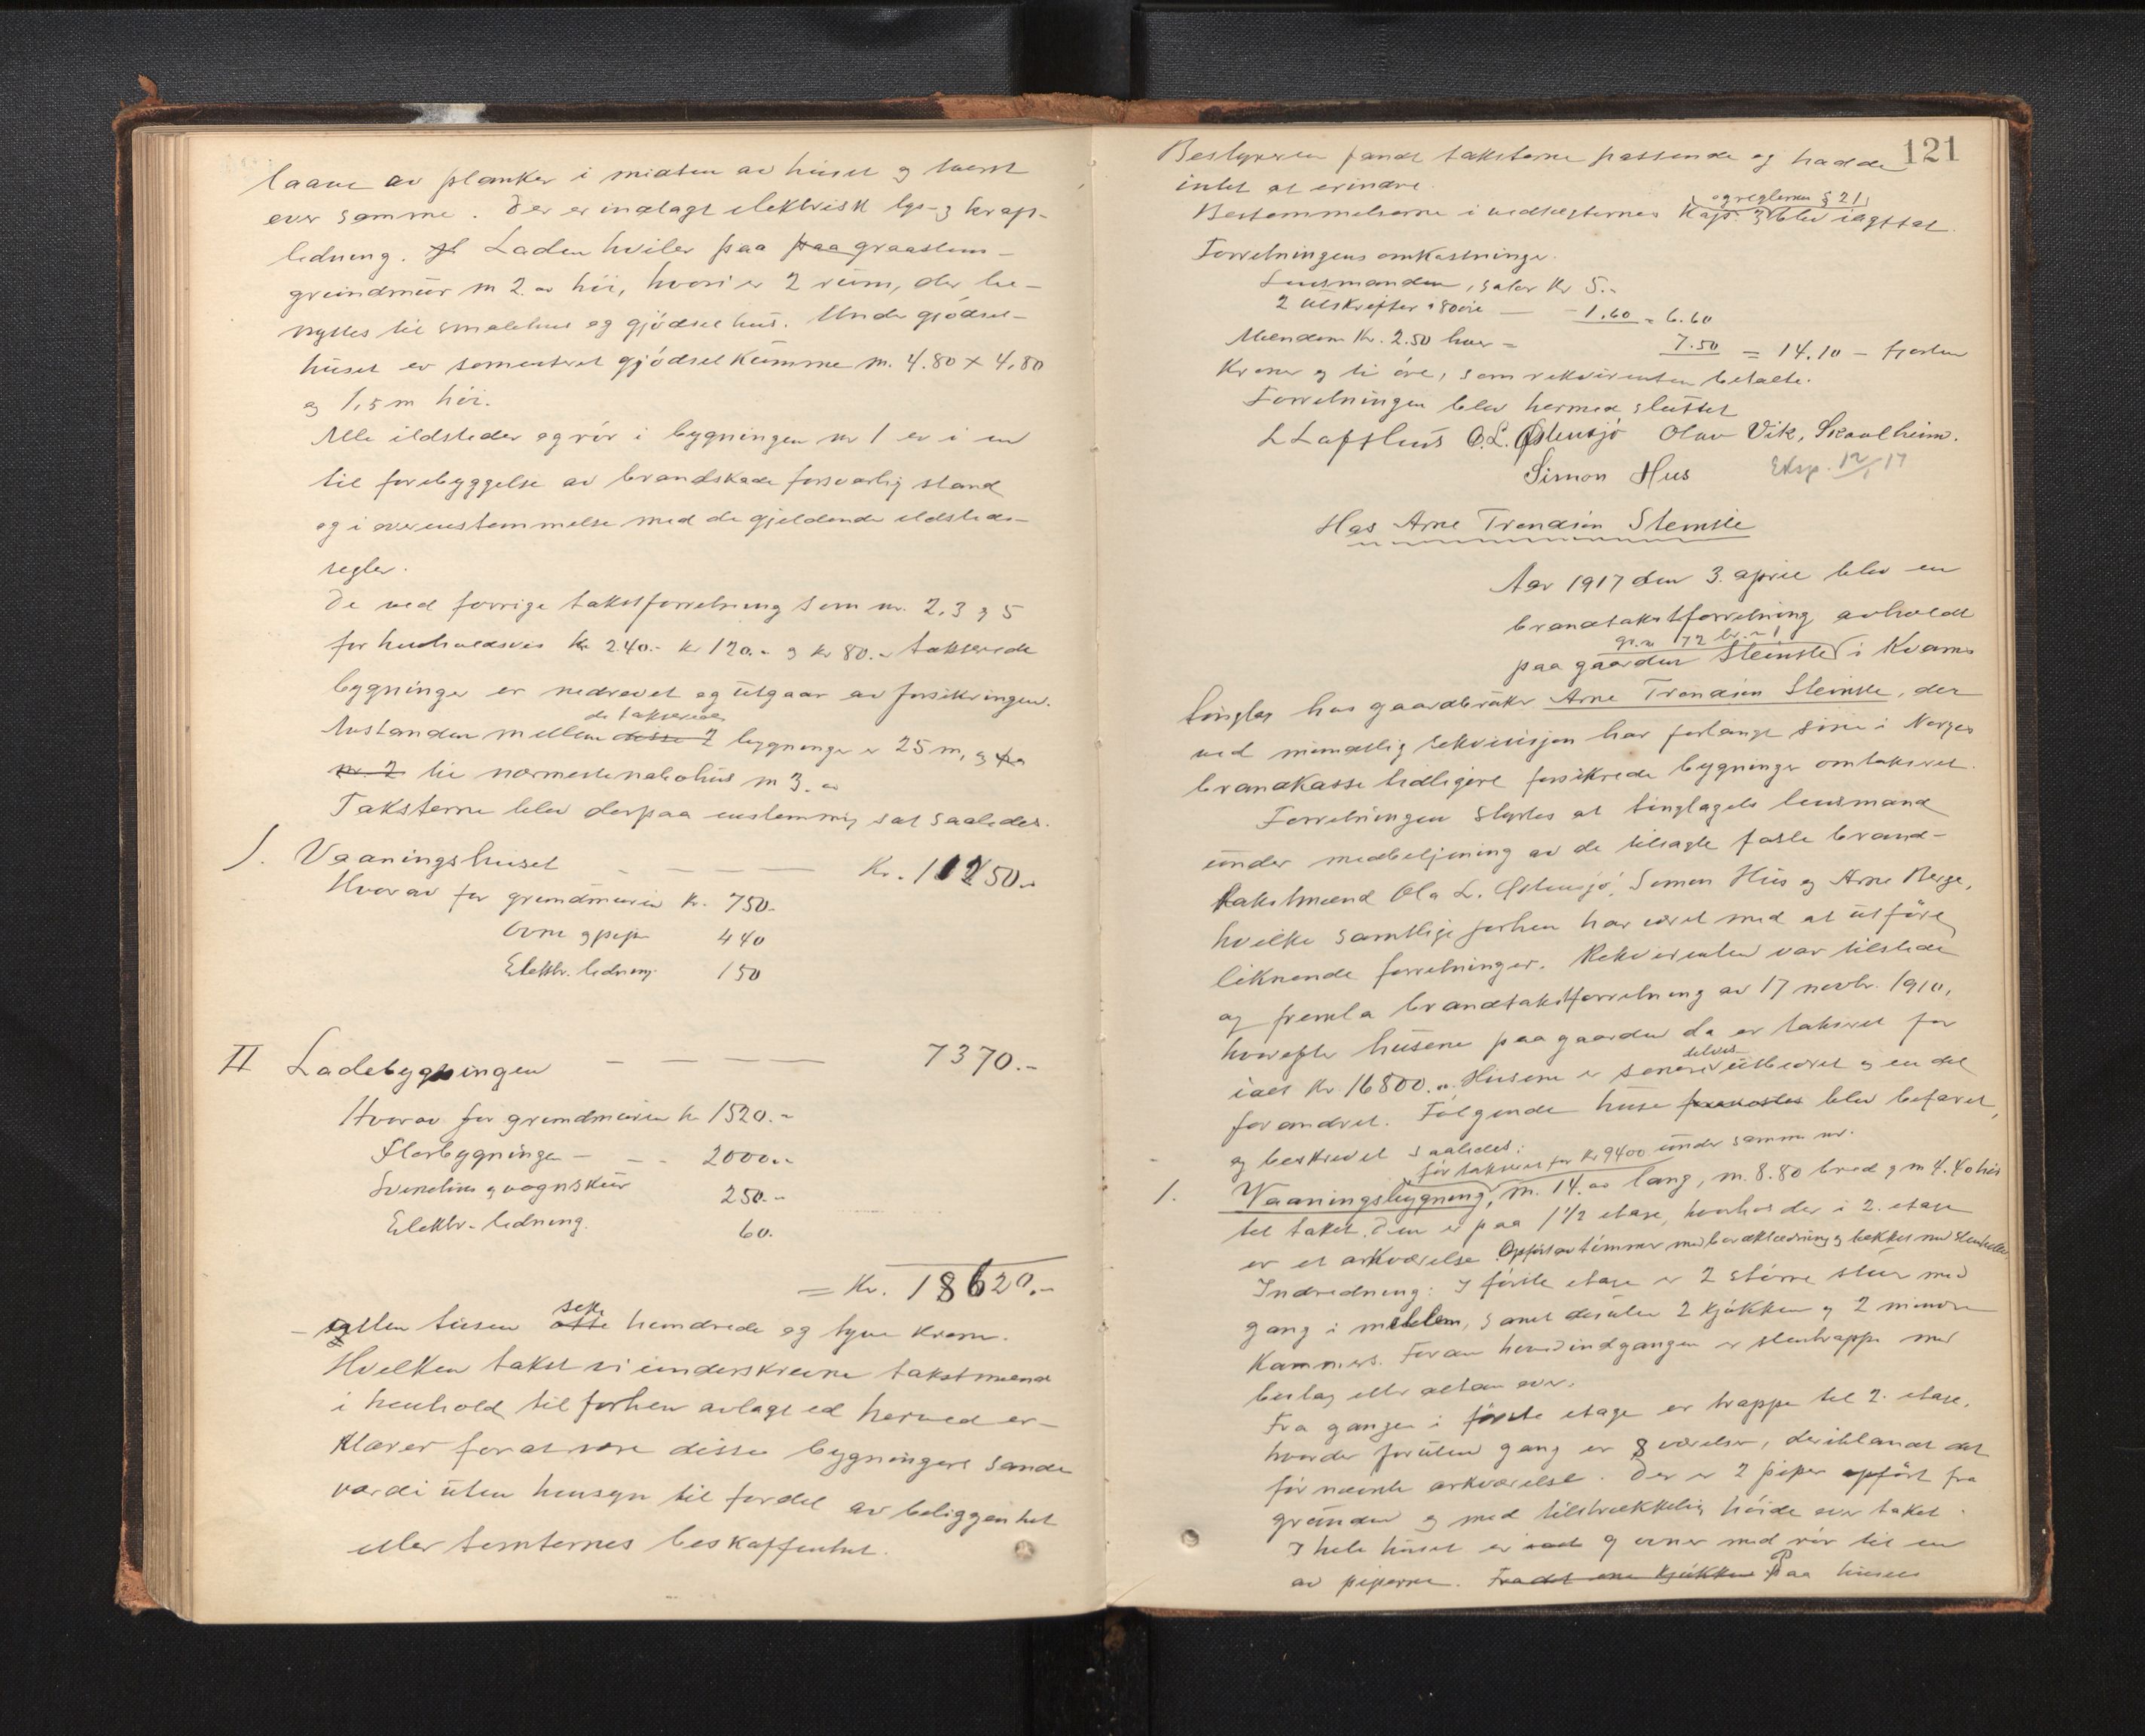 laave av planker i midten av huset og tvert
over samme. Der er indlagt elektrisk lys- og kraft-
ledning. Laden hviler paa paa graastens-
grundmur m 2.00 høi, hvori er 2 rum, der be-
nyttes til smalehus og gjødselhus. Under gjødsel-
huset er sementeret gjødselkumme m. 4.80 x 4.80
og 1,5 m høi.
Alle ildsteder og rør i bygningen nr 1 er i en
til forebyggelse av brandskade forsvarlig stand
og i overenstemmelse med de gjeldende ildsteds-
regler.
De ved forrige takstforretning som nr. 2, 3 og 5
for henholdsvis Kr 240.- Kr 120.- og Kr 80.- takserede
bygninger er nedrevet og utgaar av forsikringen.
de takserede
Avstanden mellem disse 2 bygninger er 25 m, og fra
nr. 2 til nærmeste nabohus m 3.00
Taksterne blev derpaa enstemmig sat saaledes.
I. Vaaningshuset - - - - Kr. 11250.-
Hvorav for grundmuren Kr. 750.-
Ovne og piper 440
Elektr. ledning 150
II Ladebygningen - - - - 7370.-
Hvorav for grundmuren Kr 1520.-
Florbygningen - - - 2000.-
Svinehus og vognskur 250.-
Elektr. ledning. 60.
= Kr. 18620.-
seks
- atten tusen otte hundrede og tyve kroner.
Hvilken takst vi underskrevne takstmænd
i henhold til forhen avlagt ed herved er-
klærer for at være disse bygningers sande
værdi uten hensyn til fordel av beliggenhet
eller tomternes beskaffenhet.
121
Bestyreren fandt taksterne passende og hadde
intet at erindre.
og reglerne § 21
Bestemmelserne i vedtægternes Kap. 3 blev iagttat.
Forretningens omkostninger.
Lensmanden, salær Kr 5.-
2 utskrifter a 80 øre — - 1.60 = 6.60
Mændene Kr. 2.50 hver = 7.50 = 14.10 - fjorten
Kroner og ti øre, som rekvirenten betalte.
Forretningen blev hermed sluttet
L Lofthus O. L. Østensjø Olav Vik, Skaalheim.
Simon Hus Eksp. 12/1 17
Hos Arne Trondsen Steinste
Aar 1917 den 3. april blev en
brandtakstforretning avholdt
gr. nr 72 br. nr 1
paa gaarden Steinstø i Kvams
tinglag hos gaardbruker Arne Trondsen Steinstø, der
ved mundtlig rekvisisjon har forlangt sine i Norges
brandkasse tidligere forsikrede bygninger omtaksert.
Forretningen styrtes at tinglagets lensmand
under medbetjening av de tilsagte faste brand-
takstmænd Ola L. Østensjø, Simon Hus og Arne Berge,
hvilke samtlige forhen har været med at utføre
liknende forretninger. Rekvirenten var tilstede
og fremla brandtakstforretning av 17 novbr. 1910,
hvorefter husene paa gaarden da er taksert for
delvis
ialt Kr 16800.- Husene er senere utbedret og en del
forandret. Følgende huse blev befaret,
og beskrevet saaledes:
før taksert for Kr 9400 under samme nr.
1. Vaaningsbygning, m. 14.00 lang, m. 8.80 bred og m 4.40 høi
til taket. Den er paa 1 1/2 etage, hvorhos der i 2. etage
er et arkværelse. Opført av tømmer med bordklædning og tækket med stenheller
Indredning: I første etage er 2 større stuer med
gang i mellem, samt desuten 2 kjøkken og 2 mindre
Kammers. Foran hovedindgangen er stentrappe med
beslag eller altan over.
Fra gangen i første etage er trappe til 2. etage,
hvorder foruten gang er 8 værelser, deriblandt det
før nævnte arkværelse. Der er 2 piper opført fra
grunden og med tilstrækkelig høide over taket.
I hele huset er 9 ovner med rør til en
av piperne. Fra det ene kjøkken Paa husets